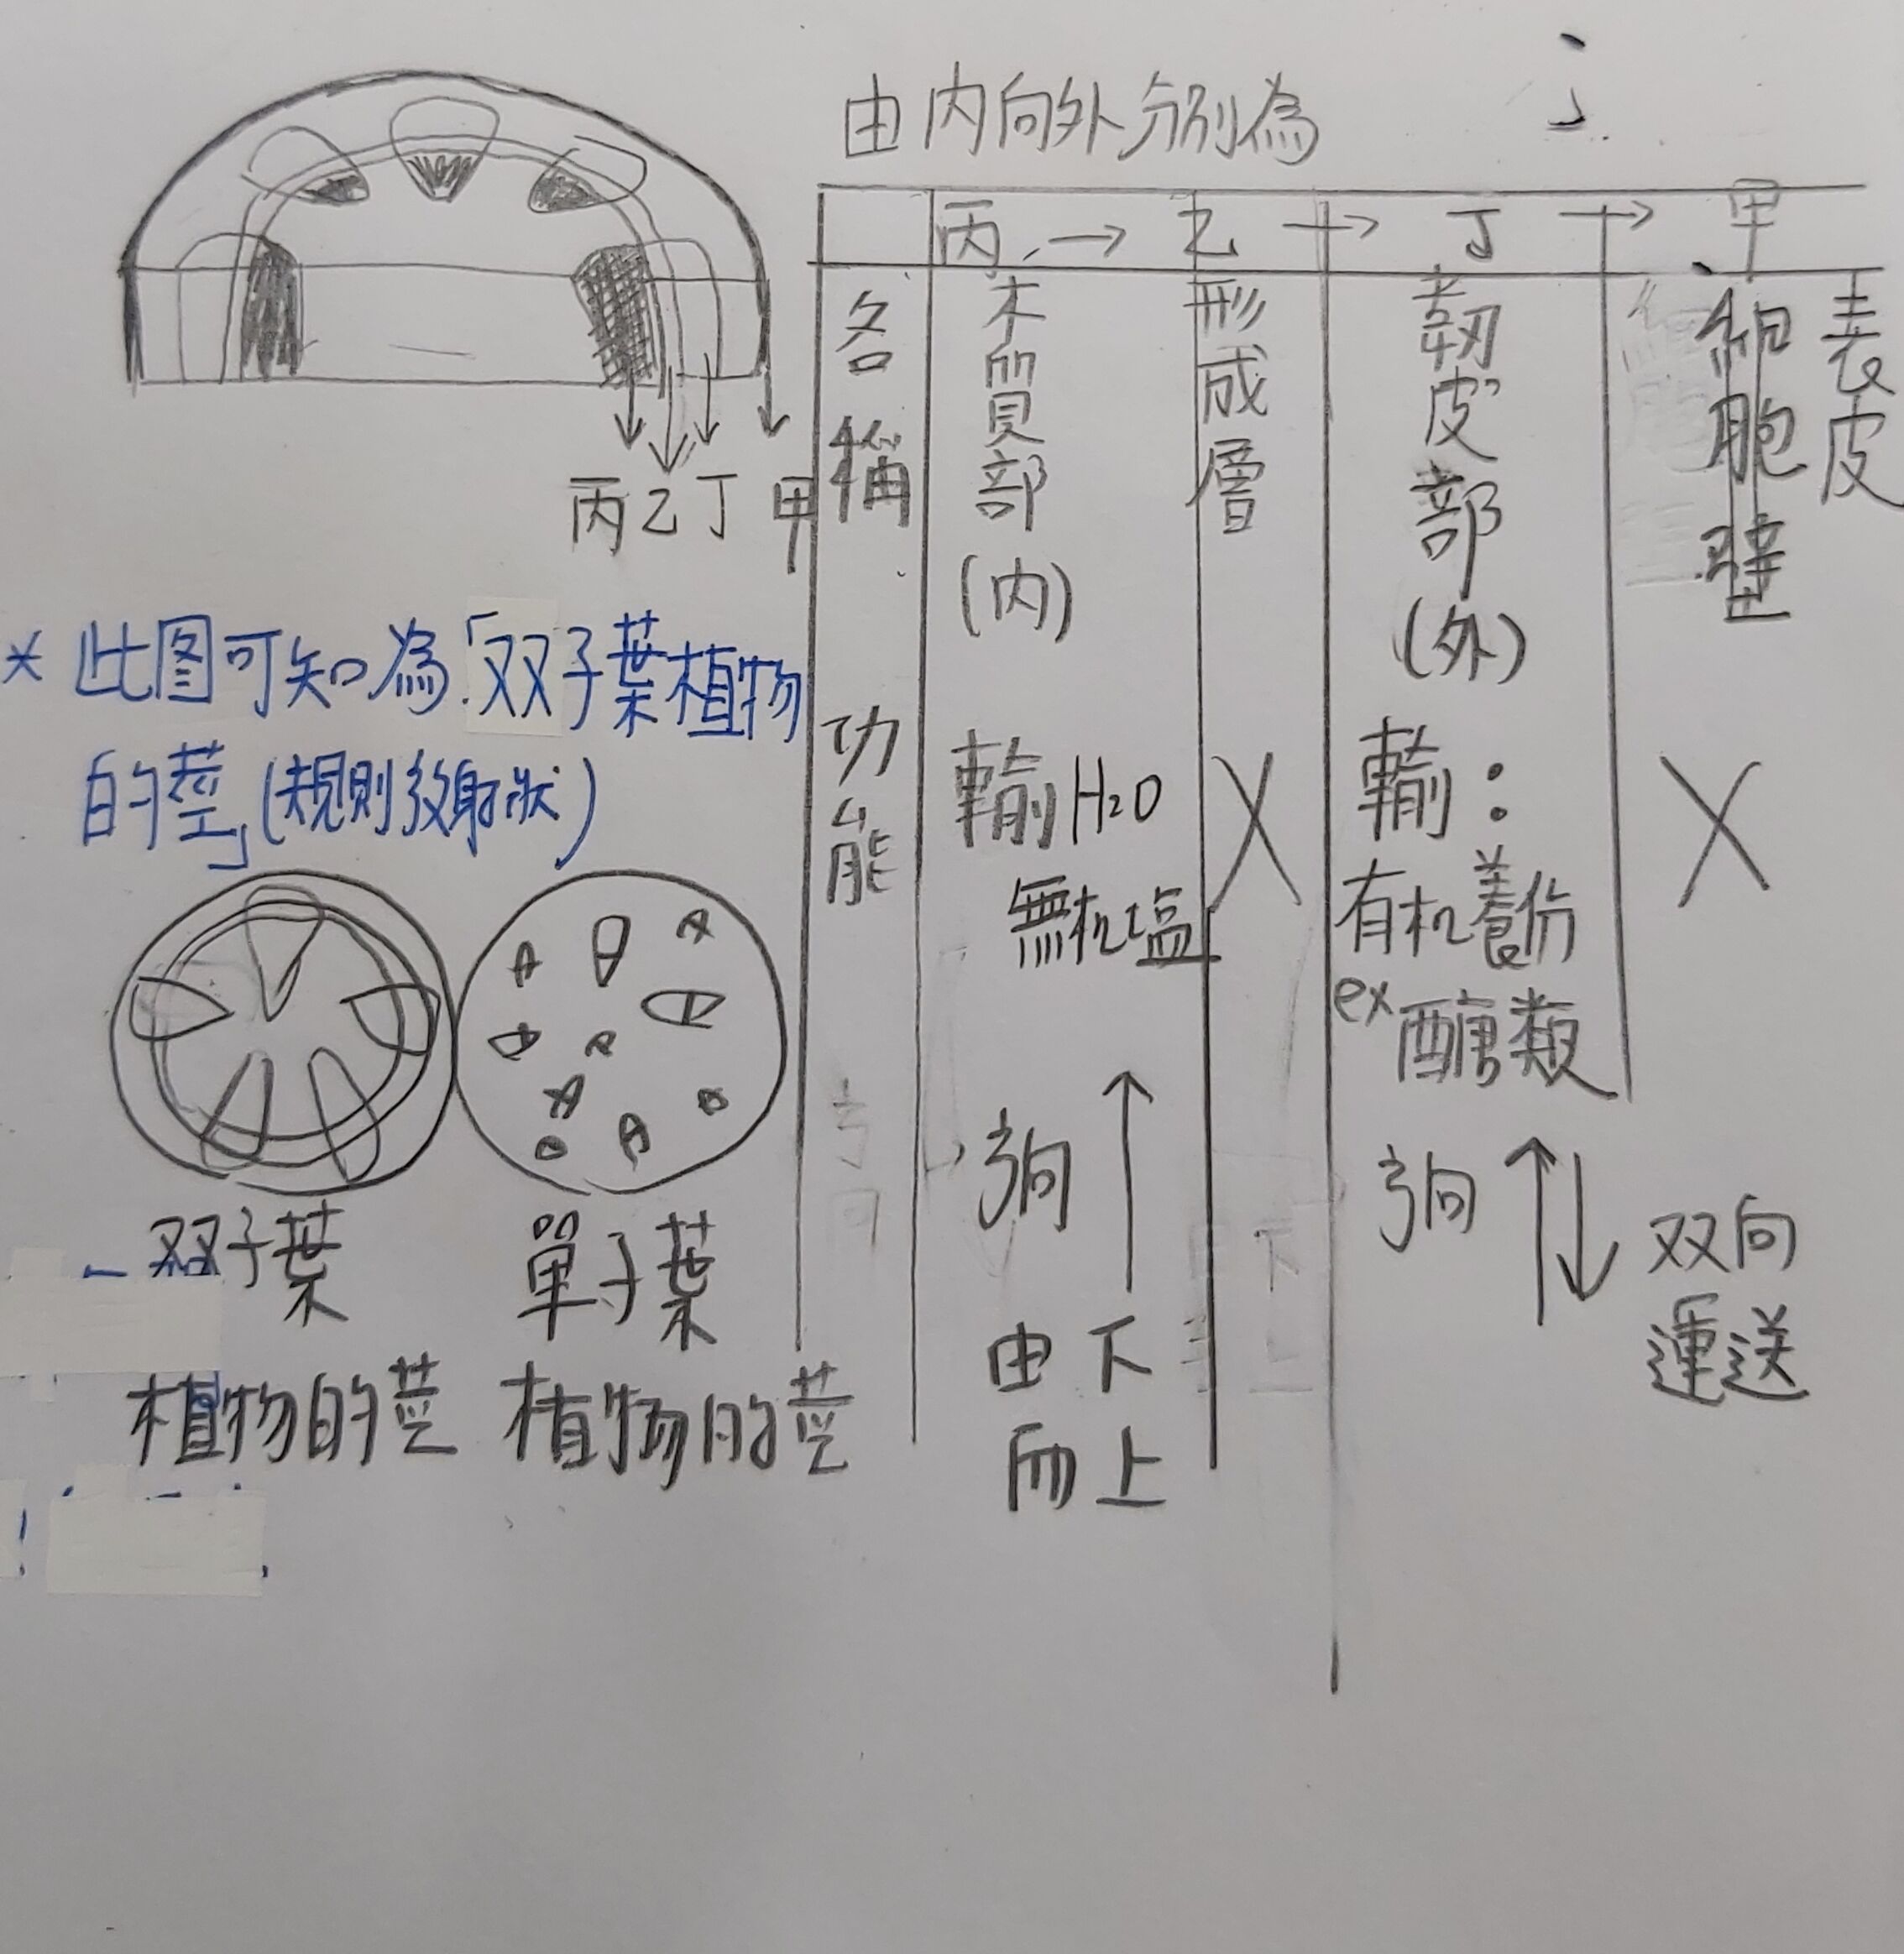 由內向外分別為
丙 → 乙 → 丁 → 甲
各稱
木質部(內)
形成層
韌皮部(外)
細胞壁
表皮
丙 乙 丁 甲
* 此图可知為「双子葉植物
的莖」(規則放射狀)
功能
輸 H₂O
無机塩
X
輸：
有机養份
ex 醣類
X
方向 ↑
由下
而上
方向 ↑↓ 双向
運送
双子葉
植物的莖
單子葉
植物的莖